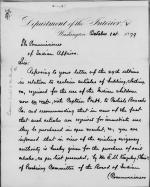 Department of the Interior
Washington October 1st 1879
The Commissioner
of Indian Affairs.
Sir:
Referring to your letter of the 29th ultimo
in relation to certain articles of bedding, clothing
&c. required for the use of the Indian children
now en route, with Captain Pratt, to Carlisle Barracks
Pa. and recommending that in view of the fact
that said articles are required for immediate use
they be purchased in open market, &c., you are
informed that in view of the existing exigency
authority is hereby given for the purchase of said
articles, as per list presented, by Mr. E. M. Kingsley, Chair'n
of Purchasing Committee of the Board of Indian
Commissioners